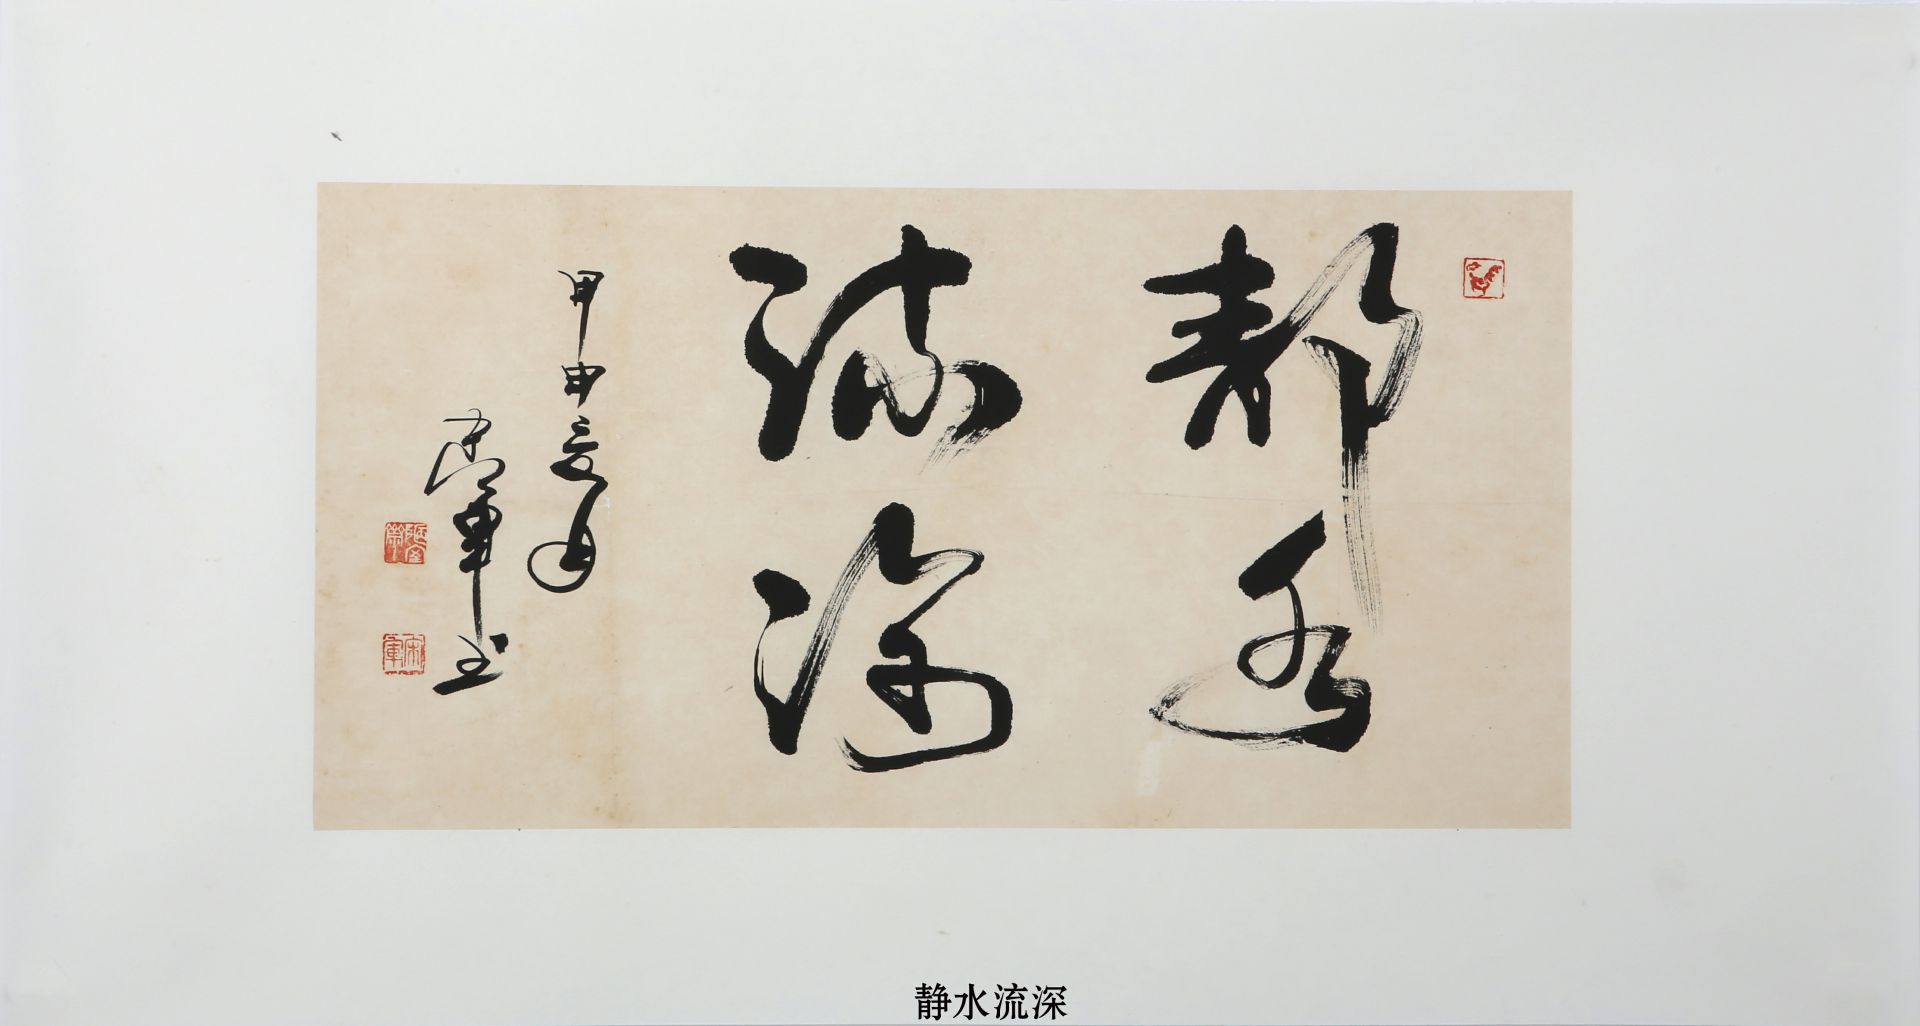 静水
流深
甲申夏月
崇军书
静水流深